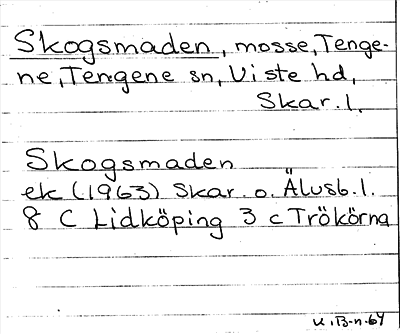 Skogsmaden, mosse, Tenge-
ne, Tengene sn, Viste hd,
Skar. l.
Skogsmaden
ek (1963) Skar. o. Älvsb. l.
8 C Lidköping 3 c Trökörna
K.B-n-64